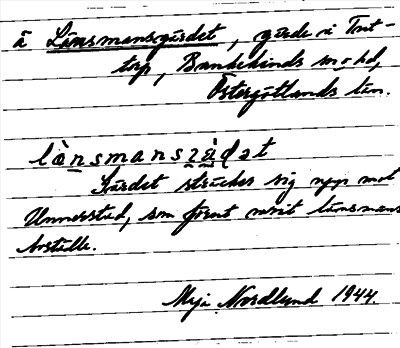 å Länsmansgärdet, gärde i Tort-
torp, Bankekinds sn o hd,
Östergötlands län.
lä̀nsmansjä̀ḍət
Gärdet sträcker sig upp mot
Unnerstad, som förut varit länsmans
boställe.
Maja Nordlund 1944.